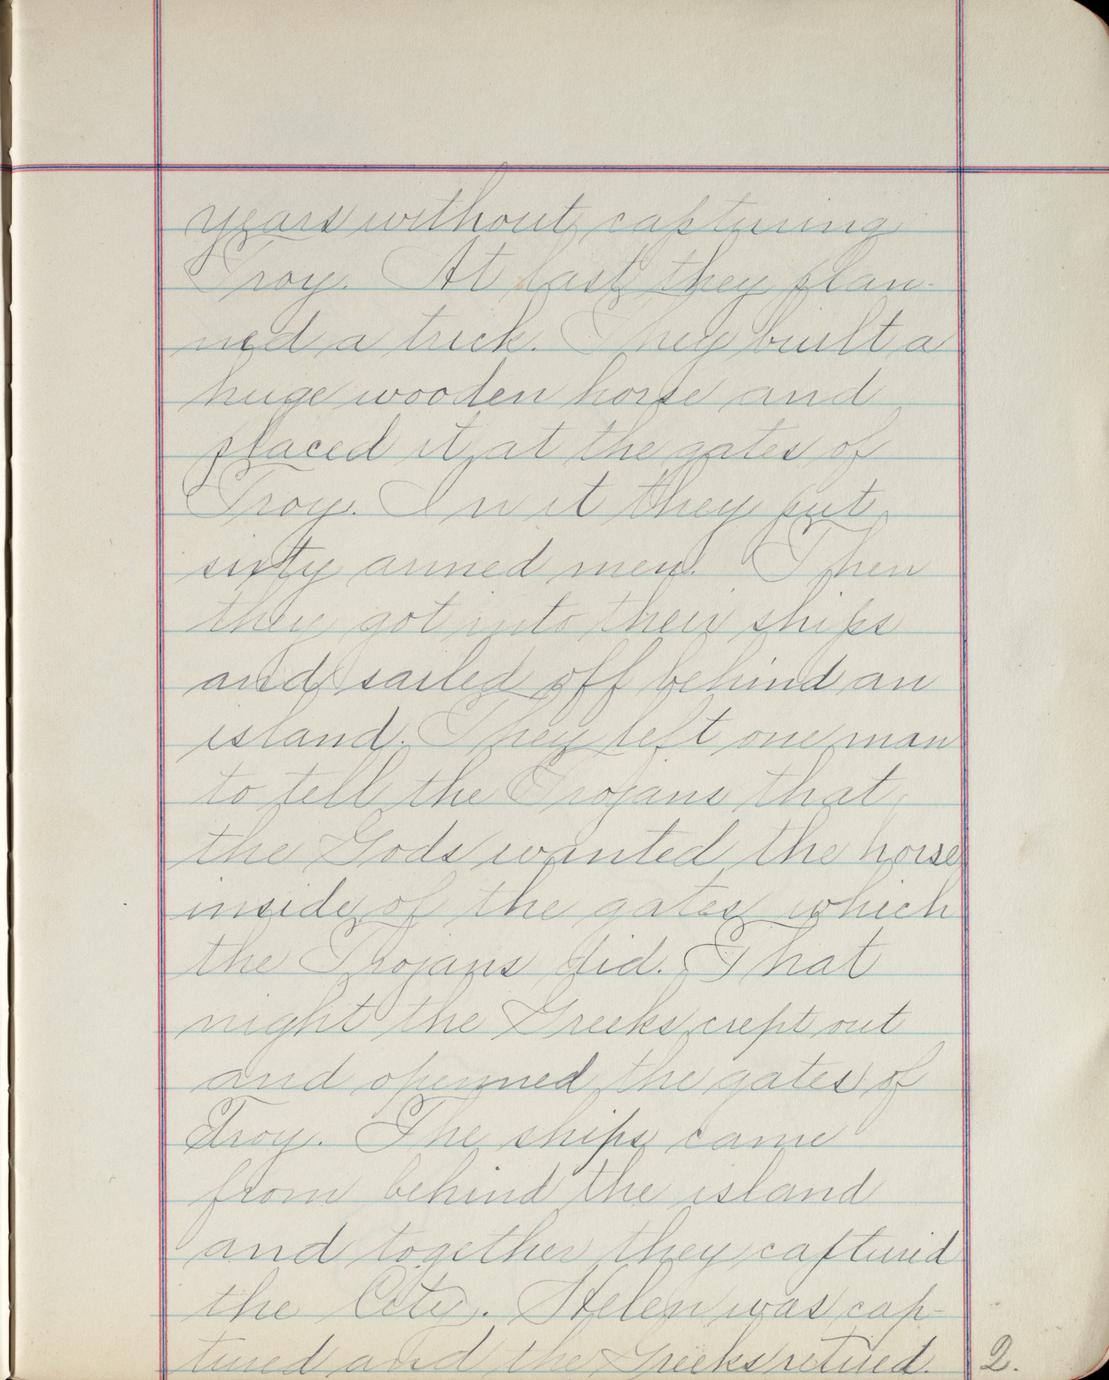 years without capturing
Troy. At last they plan-
ned a trick. They built a
huge wooden horse and
placed it at the gates of
Troy. In it they put
sixty armed men. Then
they got into their ships
and sailed off behind an
island. They left one man
to tell the Trojans that
the Gods wanted the horse
inside of the gates which
the Trojans did. That
night the Greeks crept out
and openned the gates of
Troy. The ships came
from behind the island
and together they captured
the City. Helen was cap-
tured and the Greeks retired.
2.